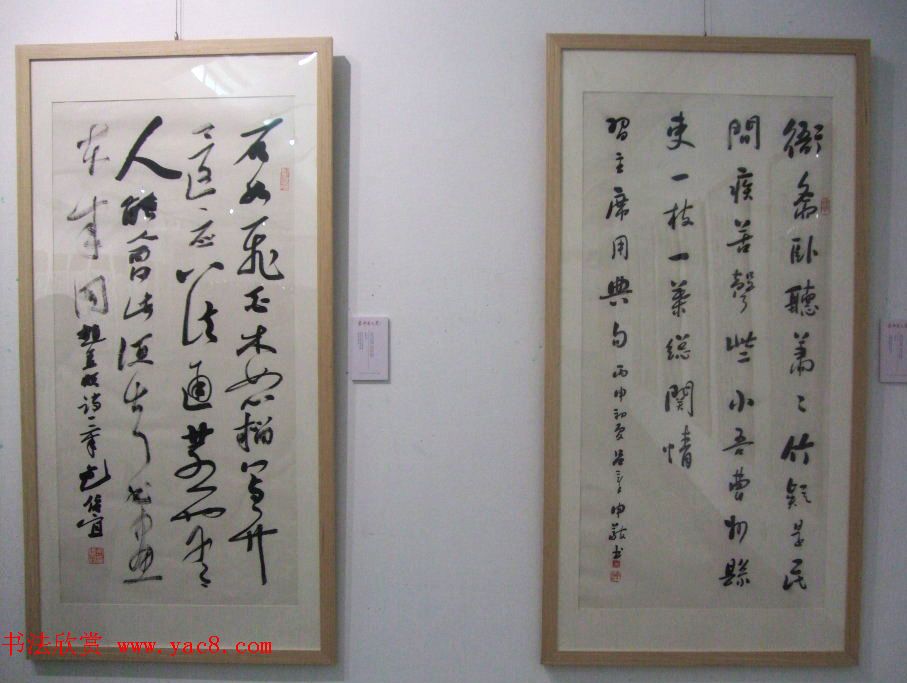 石如飛白木如籀寫竹
还应八法通若也有
人能會此須知书画
本来同 趙孟頫诗一章
衙斋卧聽萧〻竹疑是民
間疾苦聲些小吾曹州縣
吏一枝一葉総関情
習主席用典句 丙申初夏 申敬书
书法欣赏 www.yac8.com